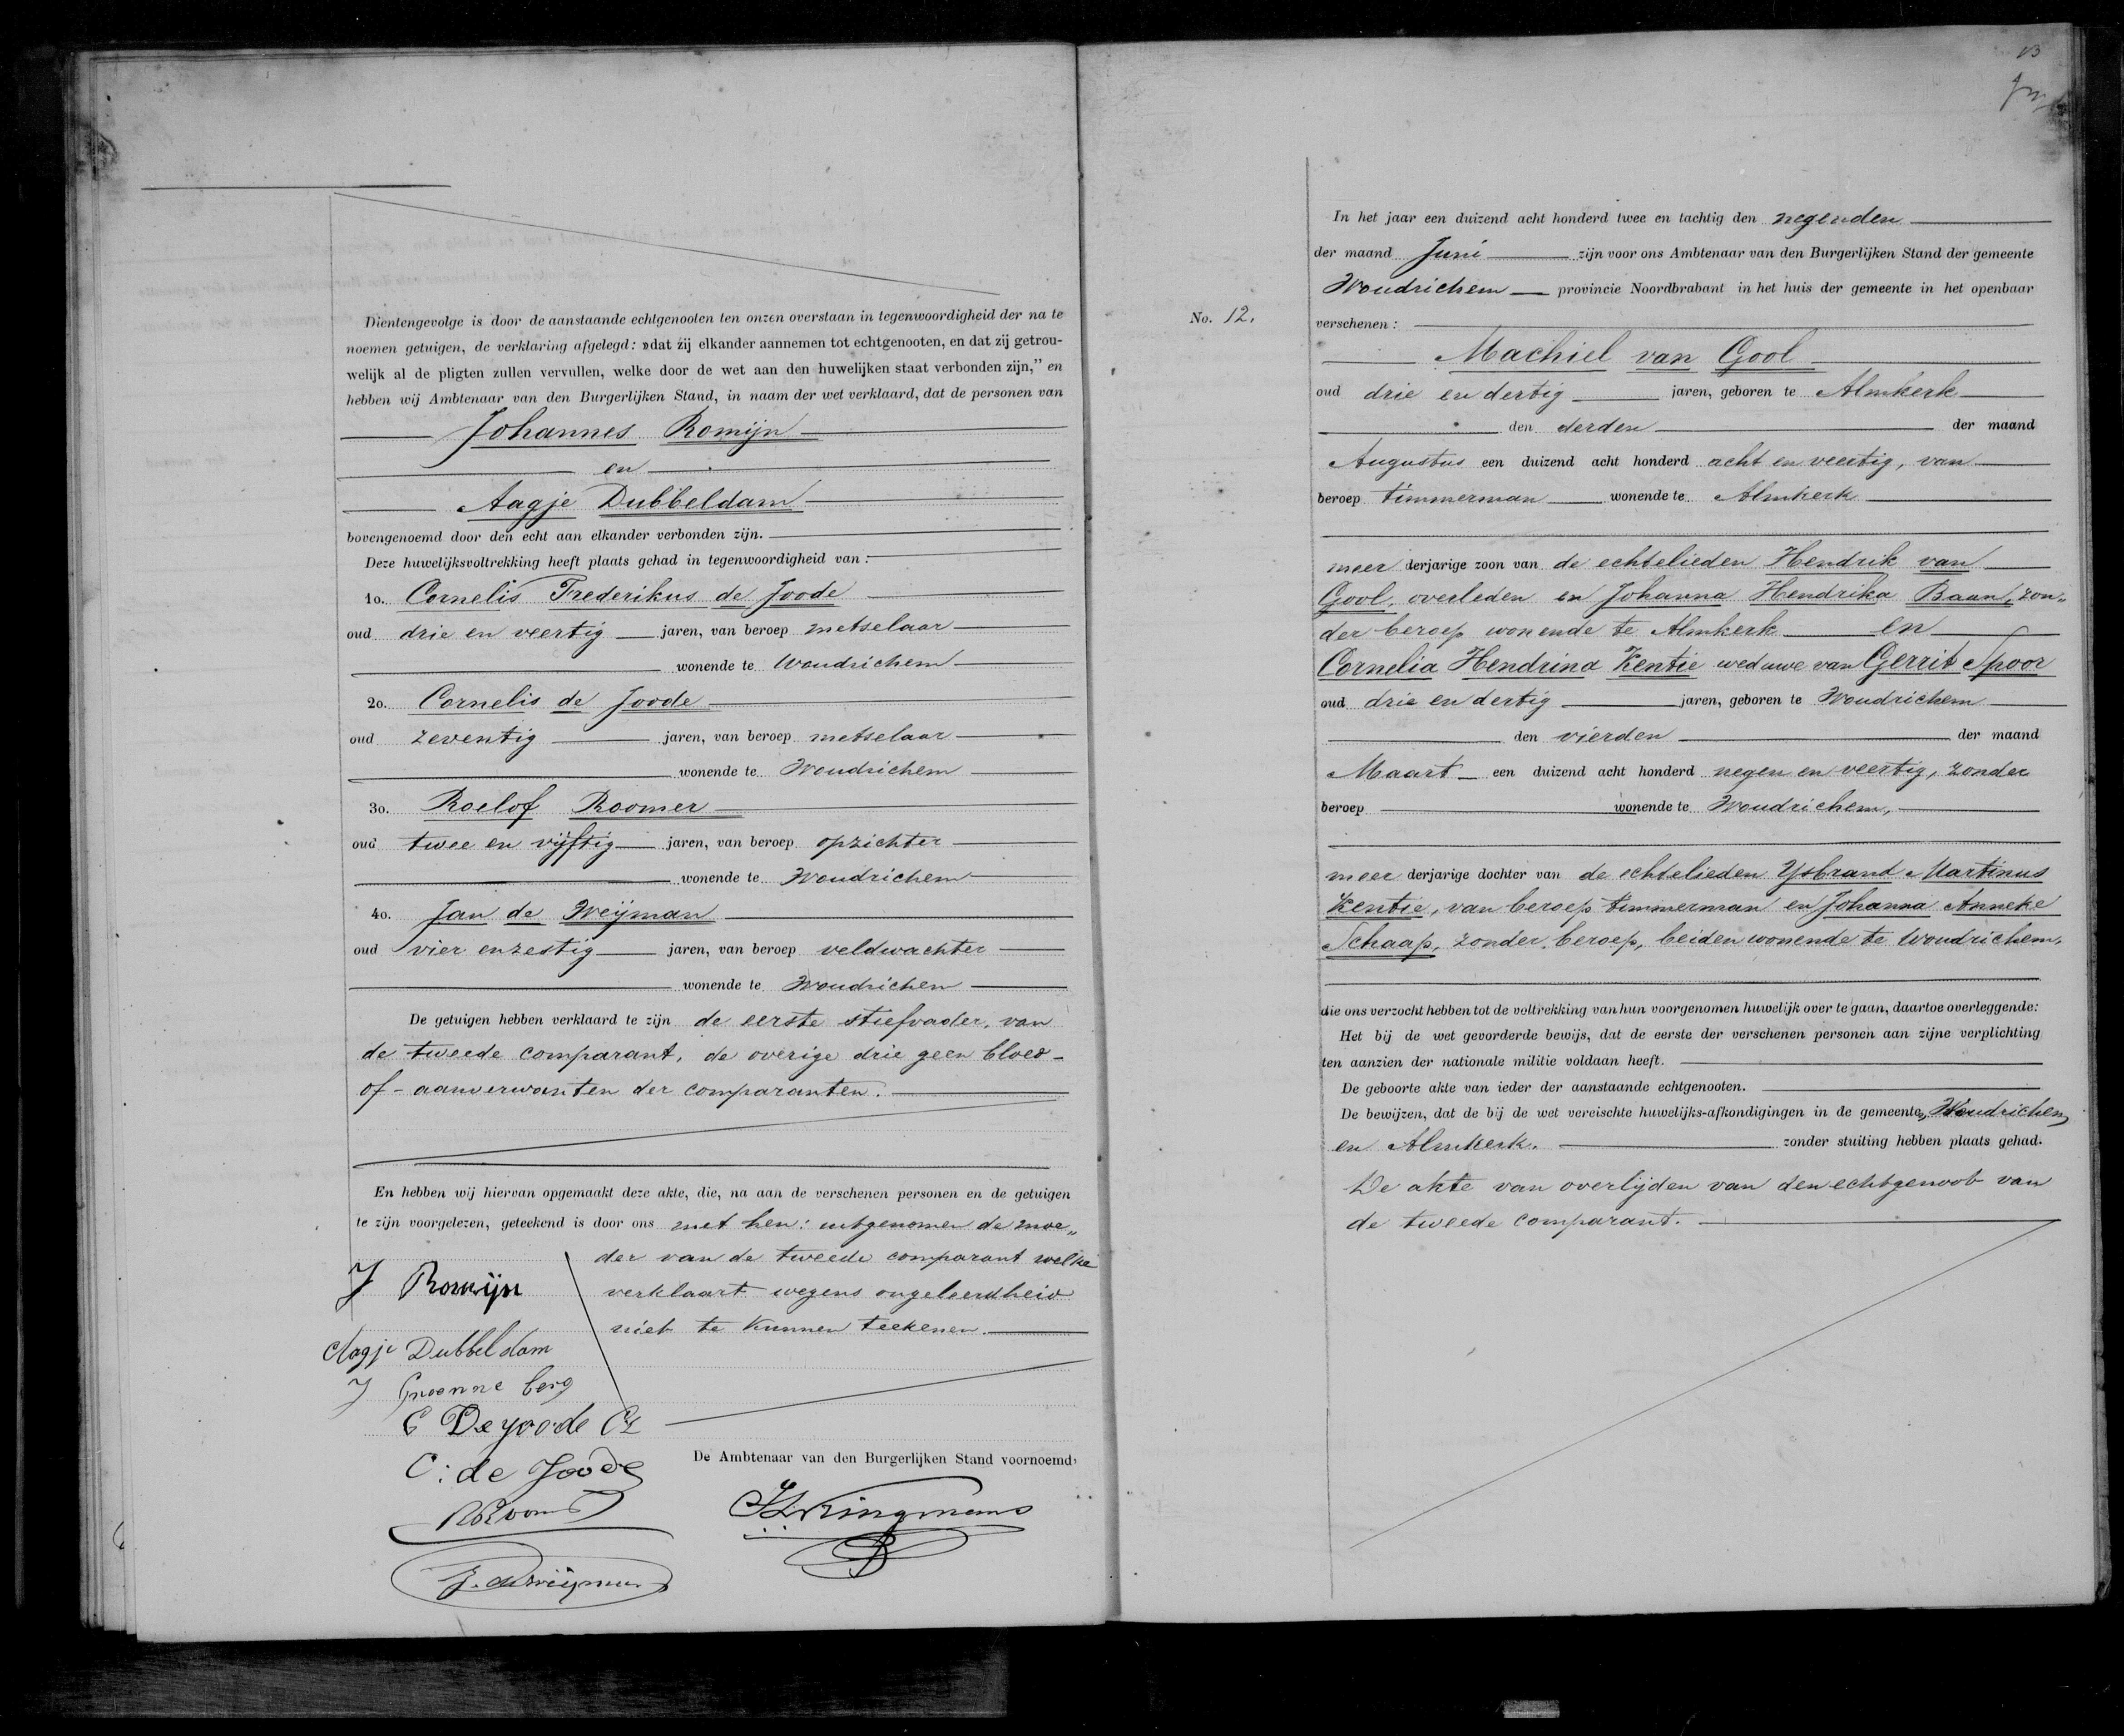 Dientengevolge is door de aanstaande echtgenooten ten onzen overstaan in tegenwoordigheid der na te
noemen getuigen, de verklaring afgelegd: »dat zij elkander aannemen tot echtgenooten, en dat zij getrou-
welijk al de pligten zullen vervullen, welke door de wet aan den huwelijken staat verbonden zijn,” en
hebben wij Ambtenaar van den Burgerlijken Stand, in naam der wet verklaard, dat de personen van
Johannes Romijn
en
Aagje Dubbeldam
bovengenoemd door den echt aan elkander verbonden zijn.
Deze huwelijksvoltrekking heeft plaats gehad in tegenwoordigheid van:
1o. Cornelis Frederikus de Joode
oud drie en veertig jaren, van beroep metselaar
wonende te Woudrichem
2o. Cornelis de Joode
oud zeventig jaren, van beroep metselaar
wonende te Woudrichem
3o. Roelof Roomer
oud twee en vijftig jaren, van beroep opzichter
wonende te Woudrichem
4o. Jan de Weijman
oud vier en zestig jaren, van beroep veldwachter
wonende te Woudrichem
De getuigen hebben verklaard te zijn de eerste stiefvader, van
de tweede comparant, de overige drie geen bloed-
of - aanverwanten der comparanten.
En hebben wij hiervan opgemaakt deze akte, die, na aan de verschenen personen en de getuigen
te zijn voorgelezen, geteekend is door ons met hen: uitgenomen de moe„
der van de tweede comparant welke
verklaart wegens ongeleerdheid
niet te kunnen teekenen.
J Romijn
Aagje Dubbeldam
J Groenne berg
C De Joode Cz
C: de Joode
De Ambtenaar van den Burgerlijken Stand voornoemd,
Kringmans
J. de Weijman
13
No. 12.
In het jaar een duizend acht honderd twee en tachtig den negenden
der maand Juni zijn voor ons Ambtenaar van den Burgerlijken Stand der gemeente
Woudrichem provincie Noordbrabant in het huis der gemeente in het openbaar
verschenen:
Machiel van Gool
oud drie en dertig jaren, geboren te Almkerk
den derden der maand
Augustus een duizend acht honderd acht en veertig, van
beroep timmerman wonende te Almkerk
meer derjarige zoon van de echtelieden Hendrik van
Gool, overleden en Johanna Hendrika Baan, zon„
der beroep wonende te Almkerk en
Cornelia Hendrina Kentie weduwe van Gerrit Spoor
oud drie en dertig jaren, geboren te Woudrichem
den vierden der maand
Maart een duizend acht honderd negen en veertig, zonder
beroep wonende te Woudrichem,
meer derjarige dochter van de echtelieden Ysbrand Martinus
Kentie, van beroep timmerman en Johanna Anneke
Schaap, zonder beroep, beiden wonende te Woudrichem,
die ons verzocht hebben tot de voltrekking van hun voorgenomen huwelijk over te gaan, daartoe overleggende:
Het bij de wet gevorderde bewijs, dat de eerste der verschenen personen aan zijne verplichting
ten aanzien der nationale militie voldaan heeft.
De geboorte akte van ieder der aanstaande echtgenooten.
De bewijzen, dat de bij de wet vereischte huwelijks-afkondigingen in de gemeenten Woudrichem
en Almkerk. zonder stuiting hebben plaats gehad.
De akte van overlijden van den echtgenoot van
de tweede comparant.